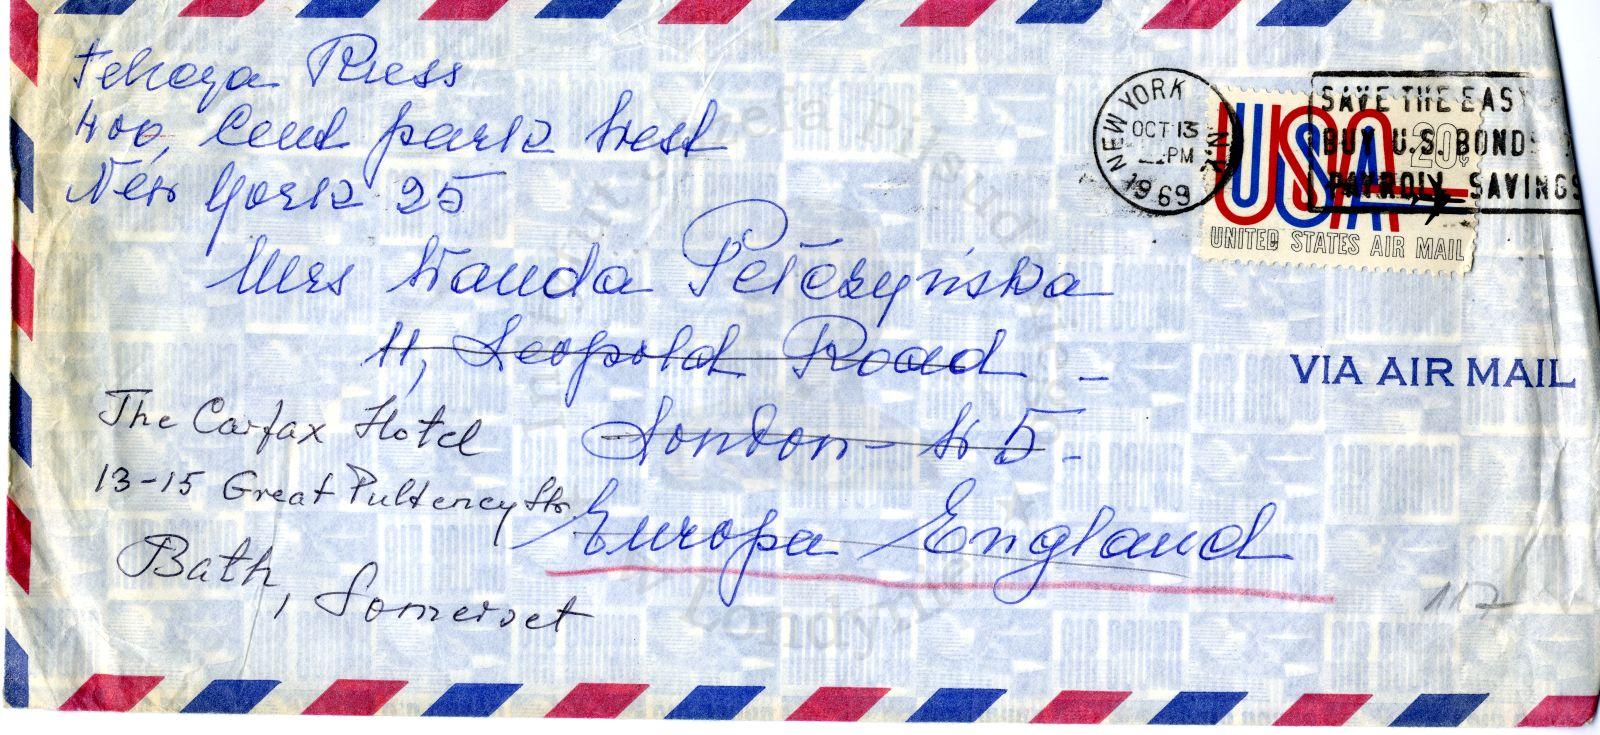 Press
400, Cent park West
New York 25
Mrs Wanda Pełczyńska
11, Leopold Road -
London - W 5 -
Europa England
The Carfax Hotel
13-15 Great Pulteney Str.
Bath, Somerset
NEW YORK
N.Y.
OCT 13
PM
1969
SAVE THE EASY
BUY U.S. BONDS
PAYROLL SAVINGS
USA
20¢
UNITED STATES AIR MAIL
VIA AIR MAIL
117
Instytut Józefa Piłsudskiego
w Londynie